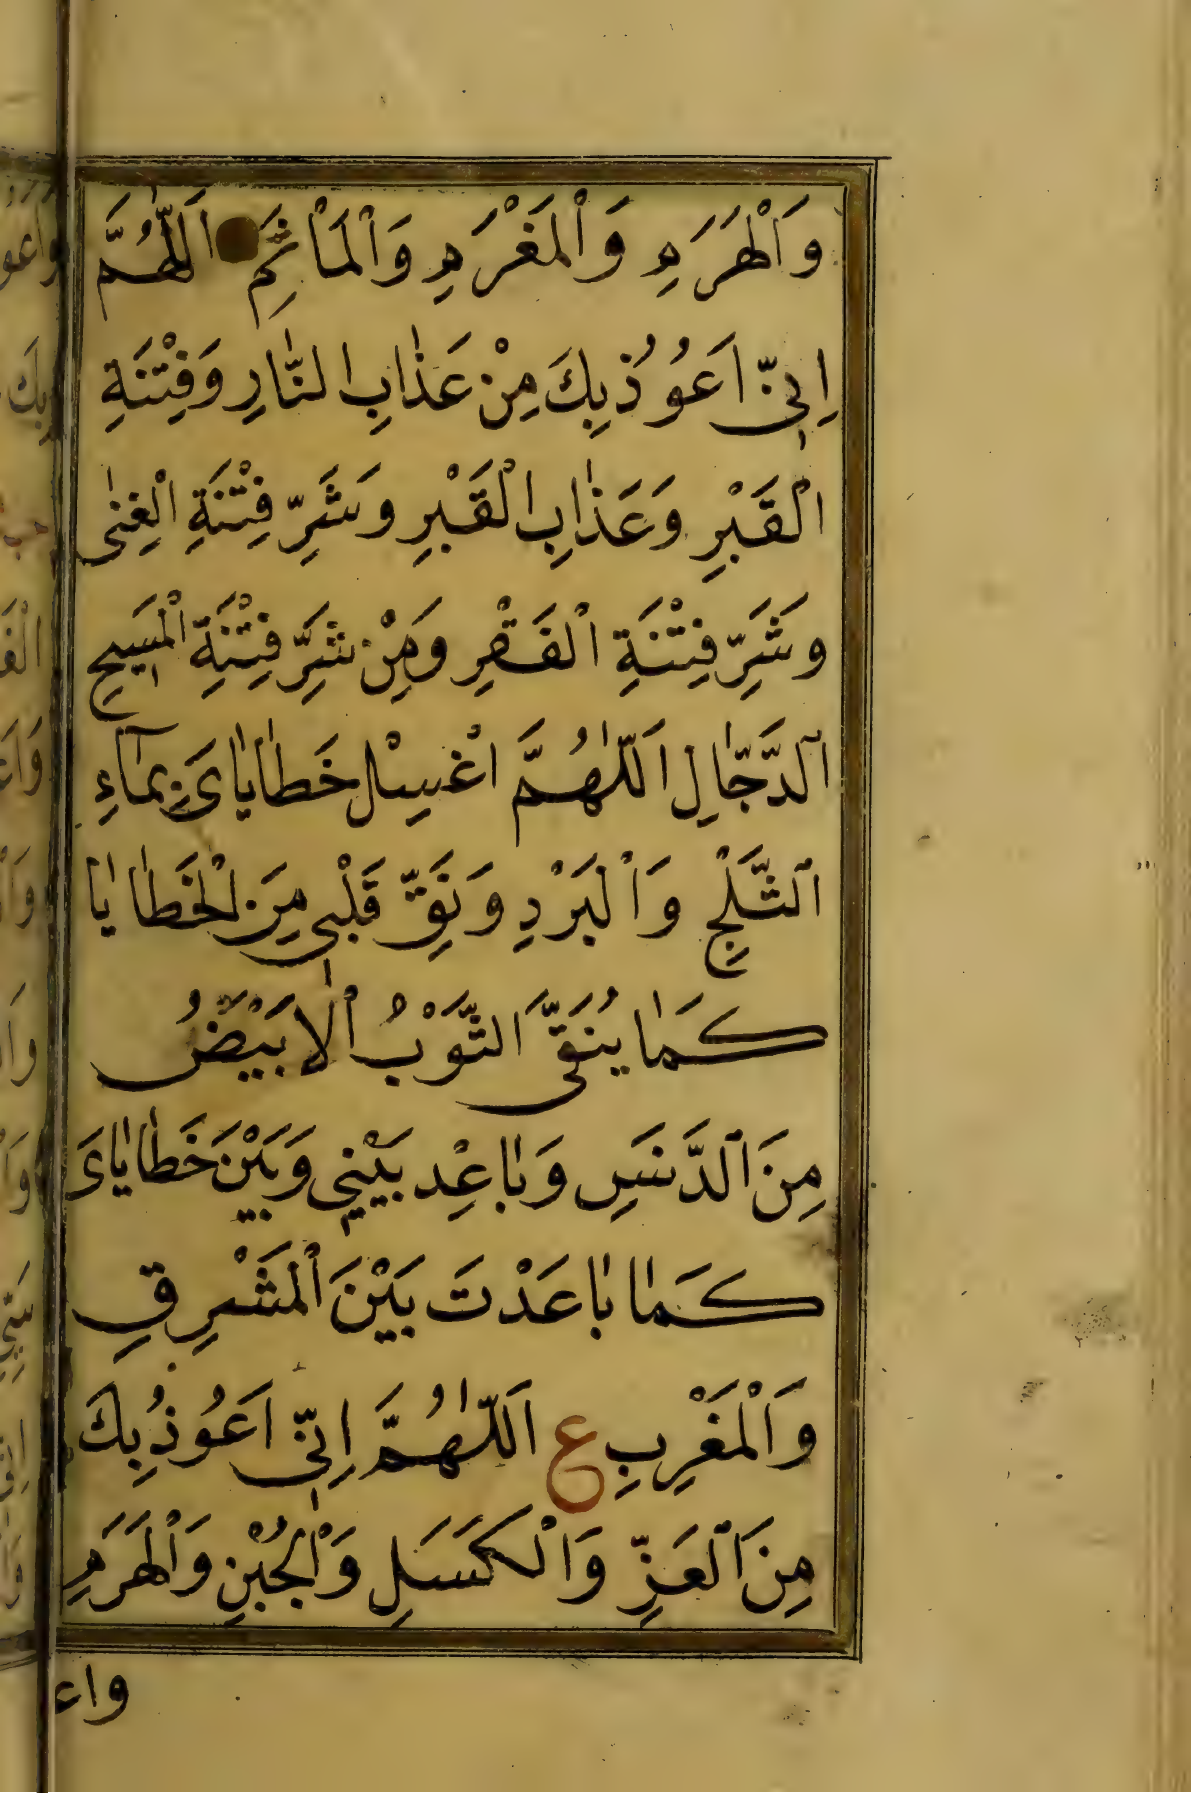 وَالْهَرَمِ وَالْمَغْرَمِ وَالْمَاْثَمِ اَللّٰهُمَّ
اِنِّىٓ اَعُوُذُ بِكَ مِنْ عَذَابِ النَّارِ وَفِتْنَةِ
الْقَبْرِ وَعَذَابِ الْقَبْرِ وَشَرِّ فِتْنَةِ الْغِنٰى
وَشَرِّ فِتْنَةِ الْفَقْرِ وَمِنْ شَرِّ فِتْنَةِ الْمَسِيحِ
الدَّجَّالِ اَللّٰهُمَّ اغْسِلْ خَطَايَاىَ بِمَآءِ
الثَّلْجِ وَالْبَرْدِ وَنَقِّ قَلْبِى مِنَ الْخَطَايَا
كَمَا يُنَقَّى الثَّوْبُ الْاَبْيَضُ
مِنَ الدَّنَسِ وَبَاعِدْ بَيْنِي وَبَيْنَ خَطَايَاىَ
كَمَا بَاعَدْتَ بَيْنَ الْمَشْرِقِ
وَالْمَغْرِبِ ع اَللّٰهُمَّ اِنِّى اَعُوذُ بِكَ
مِنَ الْعَزِّ وَالْكَسَلِ وَالْجُبْنِ وَالْهَرَمِ
واع